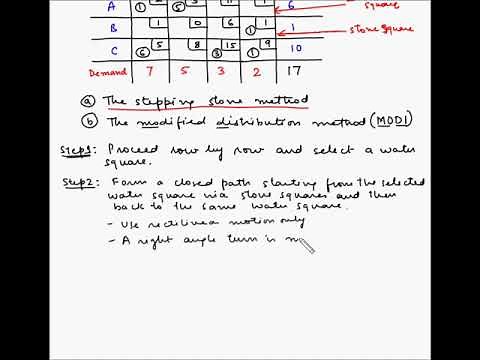 A 6
square
B 1 0 6 1 1 1
stone square
C 6 5 8 3 15 1 9 10
Demand 7 5 3 2 17
a The stepping stone method
b The modified distribution method (MODI
Step1: Proceed row by row and select a water
square.
Step2: Form a closed path starting from the selected
water square via stone squares and then
back to the same water square.
- Use rectilinear motion only
- A right angle turn is